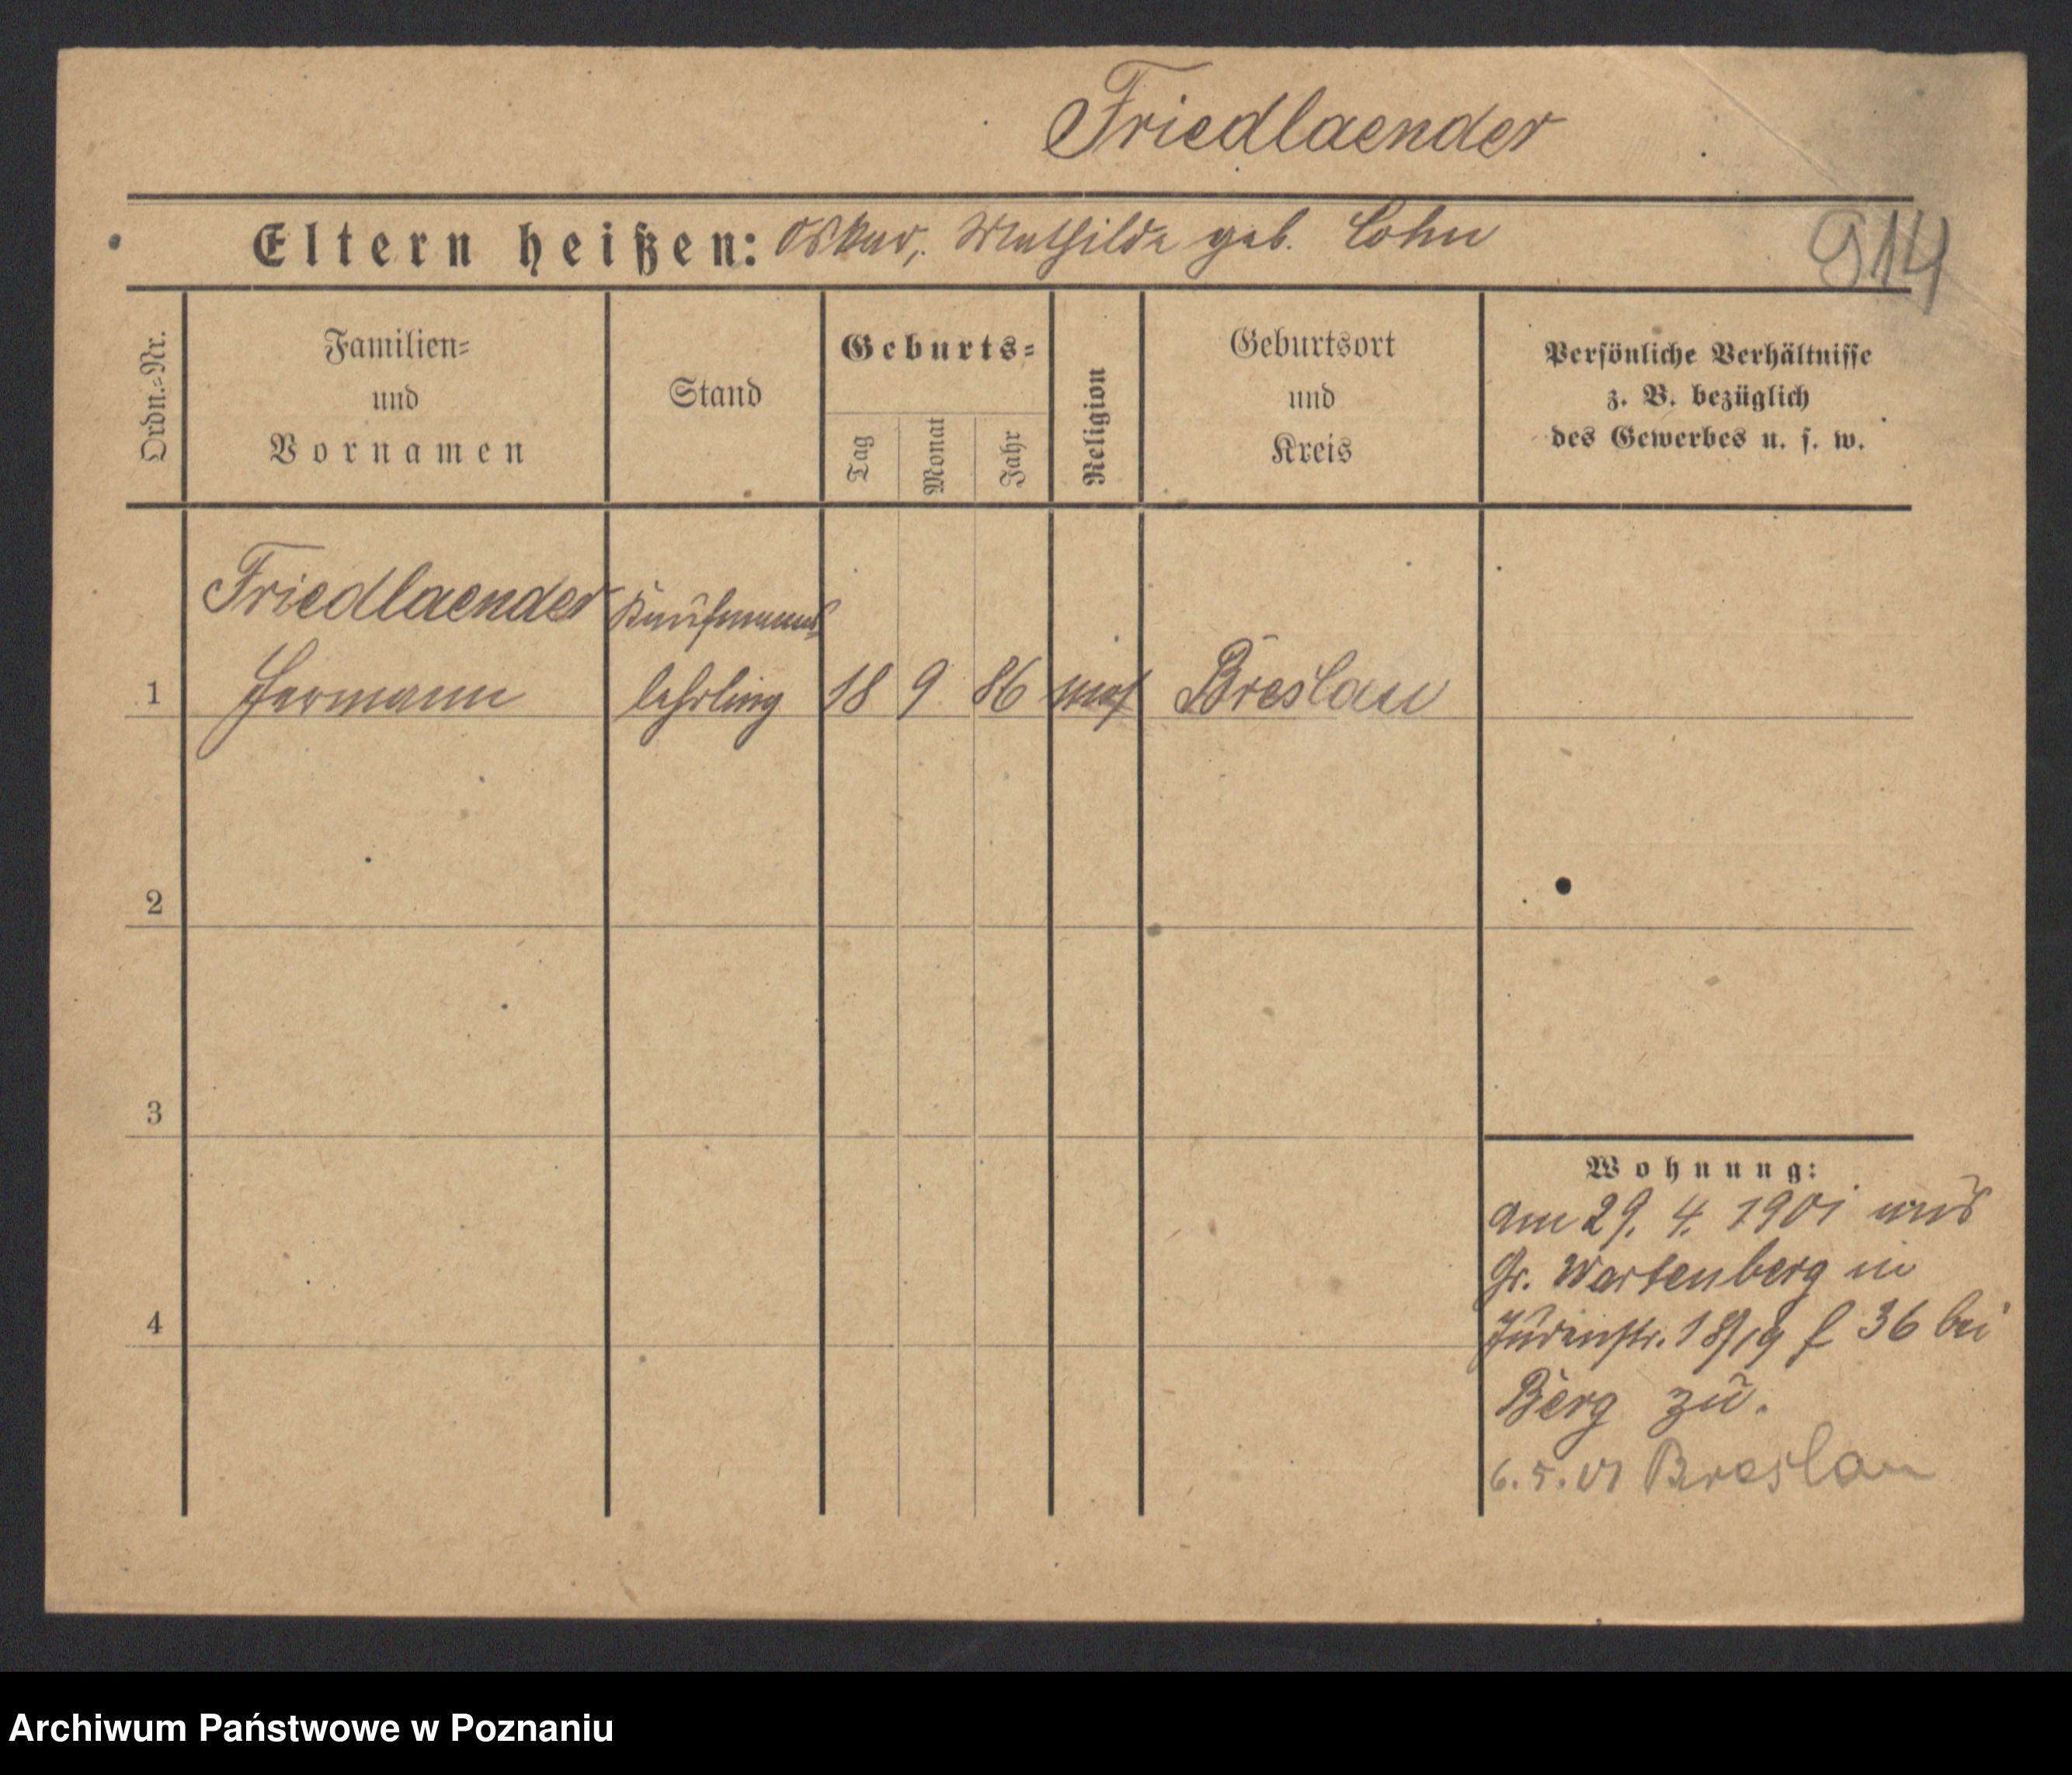 Friedlaender
Eltern heißen: Oskar, Mathilde geb. Cohn
914
Ordn.-Nr.
Familien-
und
Vornamen
Stand
Geburts-
Tag
Monat
Jahr
Religion
Geburtsort
und
Kreis
Persönliche Verhältnisse
z. B. bezüglich
des Gewerbes u. s. w.
Friedlaender Kaufmanns-
1 Hermann lehrling 18 9 86 mos Breslau
2
3
4
Wohnung:
am 29. 4. 1901 aus
Gr. Wartenberg in
Judenstr. 18/19 f 36 bei
Berg zu.
6. 5. 01 Breslau
Archiwum Państwowe w Poznaniu